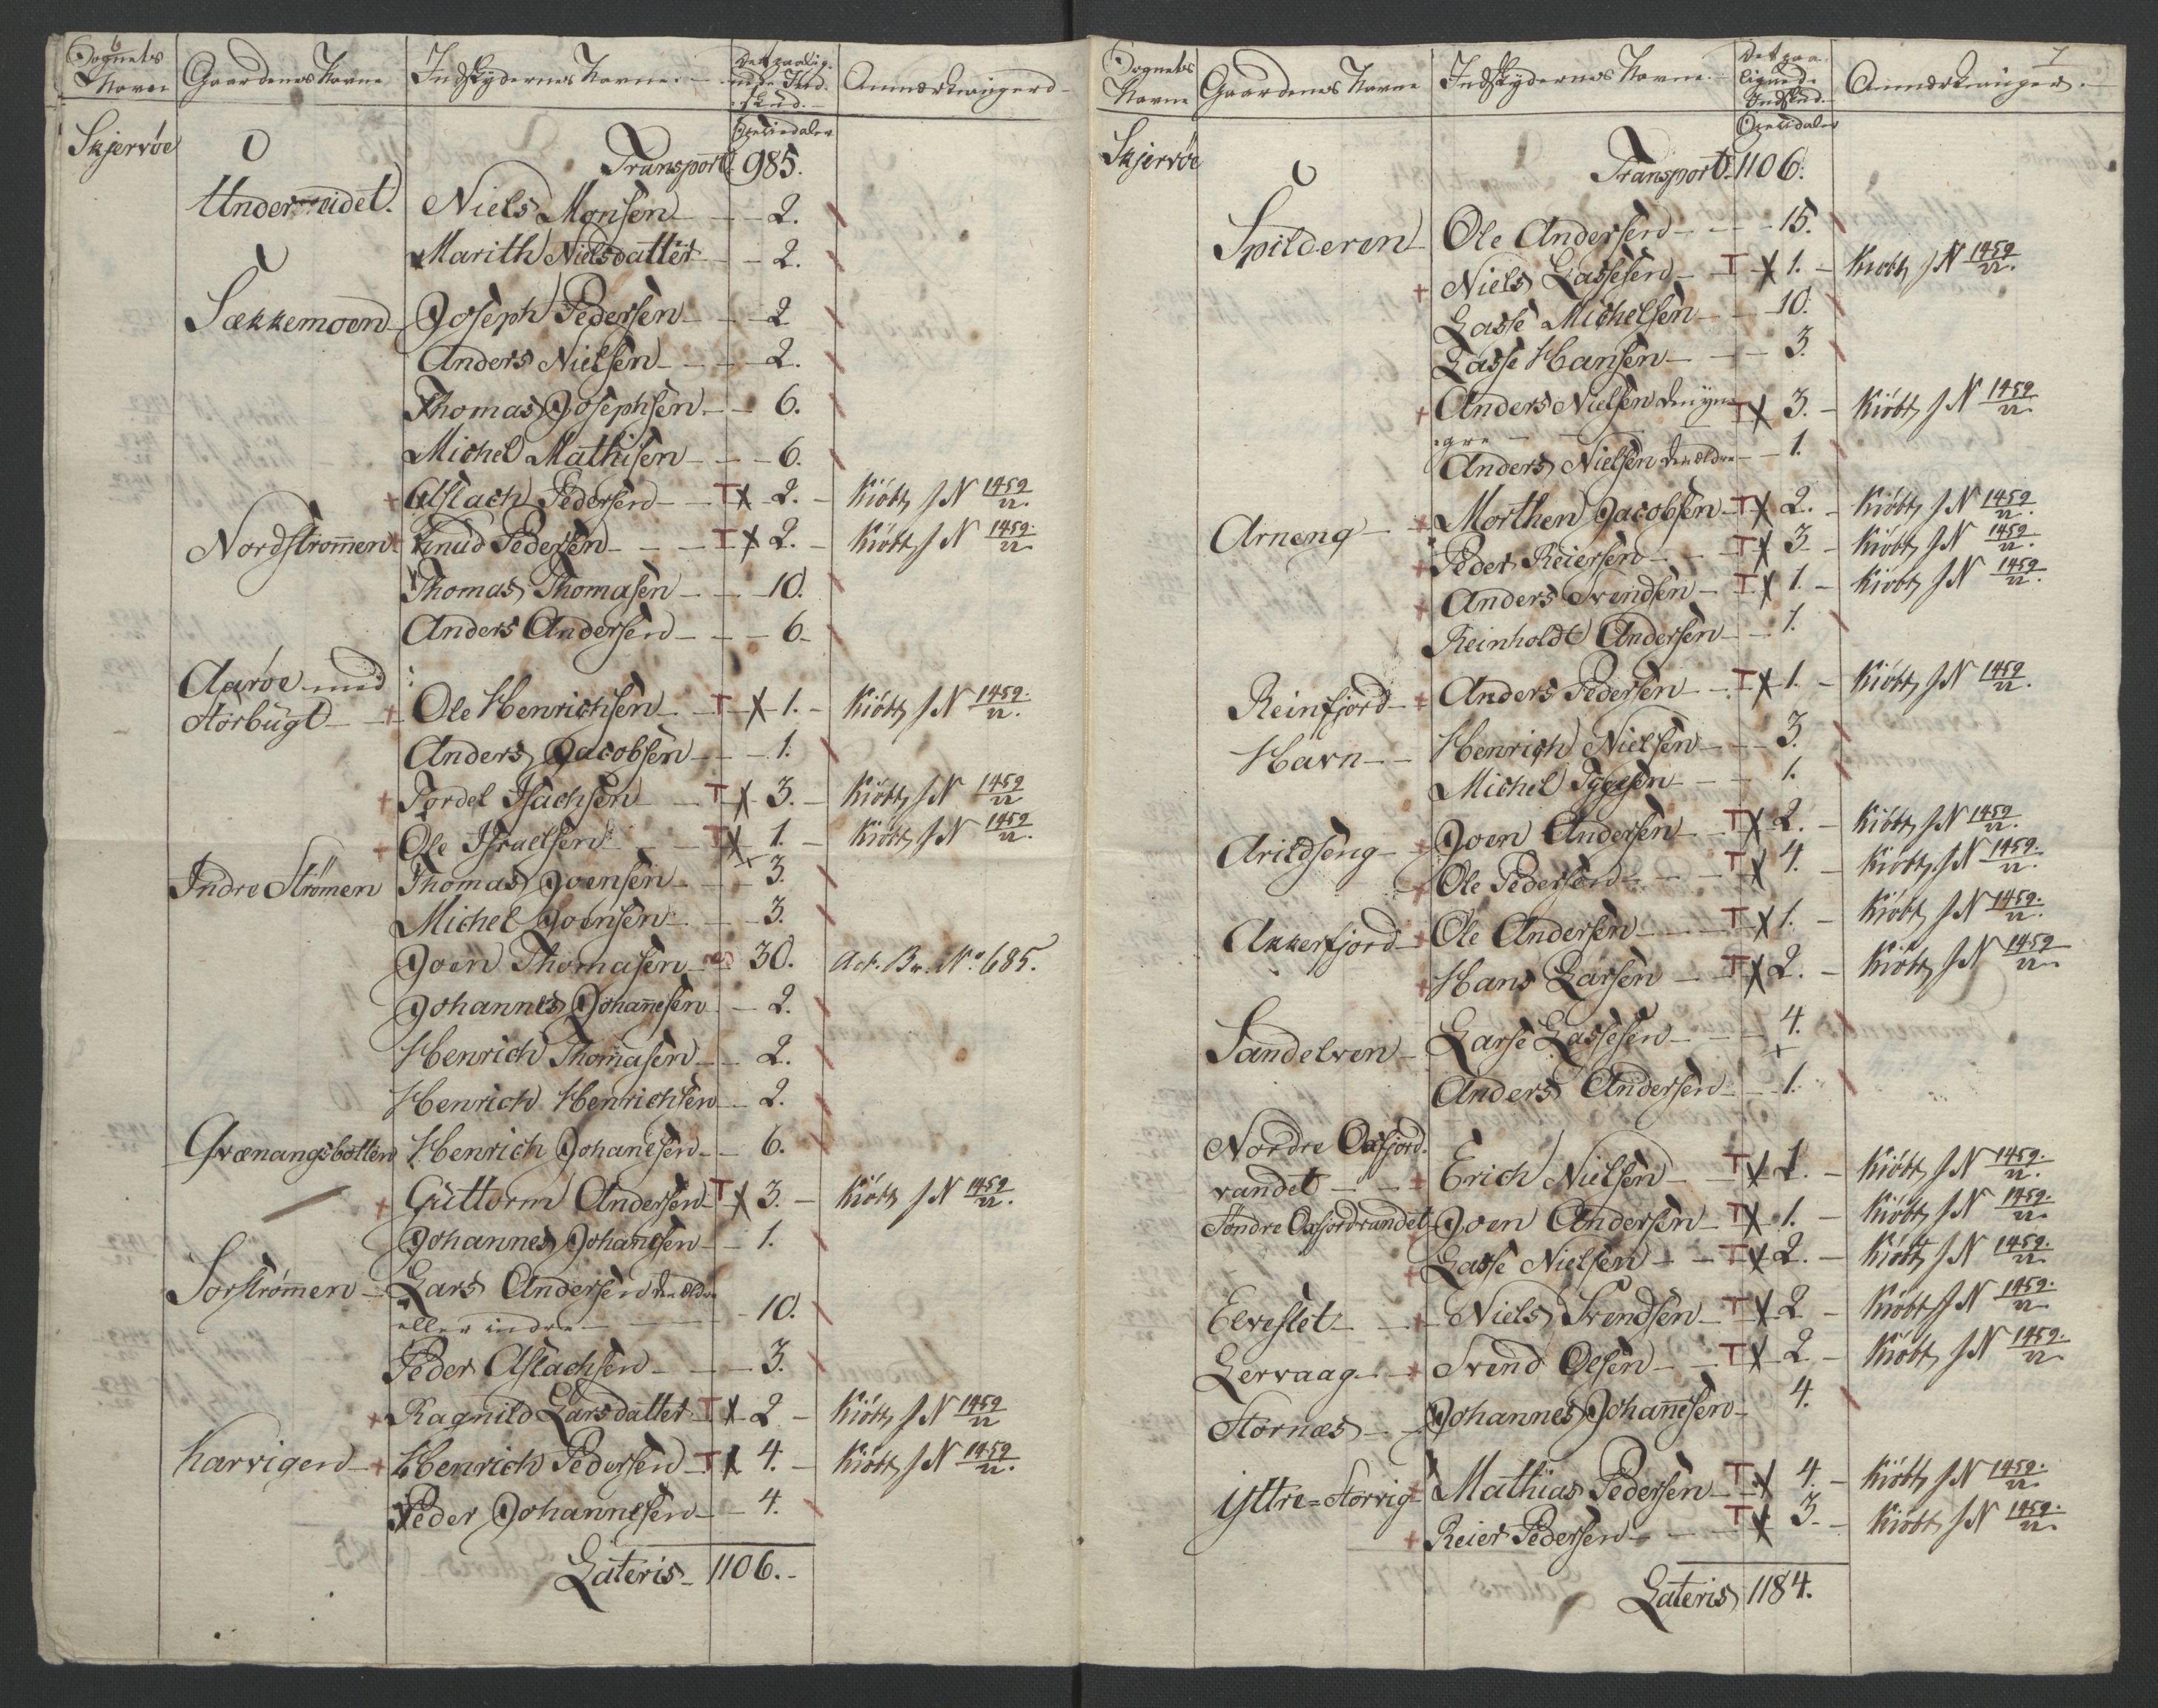 6
Sognets Navn | Gaardenes Navne | Indskydernes Navne. | Det paalignede Indskud. | Anmærkninger
Speciedaler
Skjervøe
Transport 985.
Undereidet. Niels Monsen 2.
Marith Nielsdatter 2.
Sækkemoen Joseph Pedersen 2
Anders Nielsen 2.
Thomas Josephsen 6.
Michel Mathisen 6.
+ Aslach Pedersen T x 2. Kiöbt, J N 1459/22.
Nordstrømen + Knud Pedersen T x 2. Kiöbt J N 1459/22
Thomas Thomasen 10.
Anders Andersen 6
Aarøe med
Storbugt + Ole Henrichsen T x 1. Kiöbt J N 1459/22.
Anders Jacobsen 1.
+ Tordel Isachsen T x 3. Kiöbt J N 1459/22
+ Ole Israelsen T x 1. Kiöbt J N 1459/22.
Indre Strømen Thomas Joensen 3.
Michel Joensen 3.
Joen Thomasen 30. Act. Br. No. 685.
Johannes Johanesen 2.
Henrich Thomasen 2.
Henrich Henrichsen 2.
Qvænangsbotten Henrich Johanesen 6.
+ Guttorm Andersen T x 3. Kiöbt J N 1459/22.
Johannes Johanesen 1.
Sorstrømmen Lars Andersen den ældre
eller indre 10.
Peder Aslachsen 3.
+ Ragnild Larsdatter T x 2 Kiöbt J N 1459/22
Karvigen + Henrich Pedersen T x 4. Kiöbt J N 1459/22.
Peder Johannesen 4.
Lateris 1106.
7
Sognets Navne | Gaardenes Navne | Indskydernes Navne. | Det paalignede Indskud. | Anmærkninger.
Speciedaler
Skjervøe
Transport. 1106.
Spilderen Ole Andersen 15.
+ Niels Lassesen T x 1. Kiöbt J N 1459/22.
Lasse Michelsen 10.
Lasse Hansen 3.
+ Anders Nielsen den yn- T x 3. Kiöbt J N 1459/22.
gre
Anders Nielsen den ældre 1.
Arneng + Morthen Jacobsen T x 2. Kiöbt J N 1459/22.
+ Peder Reiersen T x 3 Kiöbt J N 1459/22.
+ Anders Svendsen T x 1. Kiöbt J N 1459/22.
Reinholdt Andersen 1.
Reinfjord + Anders Pedersen T x 1. Kiöbt J N 1459/22.
Havn Henrich Nielsen 3.
Michel Iggesen 1.
Arildseng + Joen Andersen T x 2. Kiöbt J N 1459/22.
+ Ole Pedersen T x 4. Kiöbt J N 1459/22.
Akkerfjord + Ole Andersen T x 1. Kiöbt J N 1459/22.
+ Hans Larsen T x 2. Kiöbt J N 1459/22
Sandelven Larse Lassesen 4.
Anders Andersen 1.
Nordre Oxfjord-
vandet + Erich Nielsen T x 1. Kiöbt J N 1459/22.
Søndre Oxfjordvandet + Joen Andersen T x 1. Kiöbt J N 1459/22.
+ Lasse Nielsen T x 2. Kiöbt J N 1459/22.
Elveslet + Niels Svendsen T x 2 Kiöbt J N 1459/22.
Lervaag + Svend Olsen T x 2 Kiöbt J N 1459/22
Stornæs Johannes Johanesen 4.
Yttre=Storvig + Mathias Pedersen T x 4. Kiöbt J N 1459/22.
+ Reier Pedersen T x 3. Kiöbt J N 1459/22.
Lateris 1184.